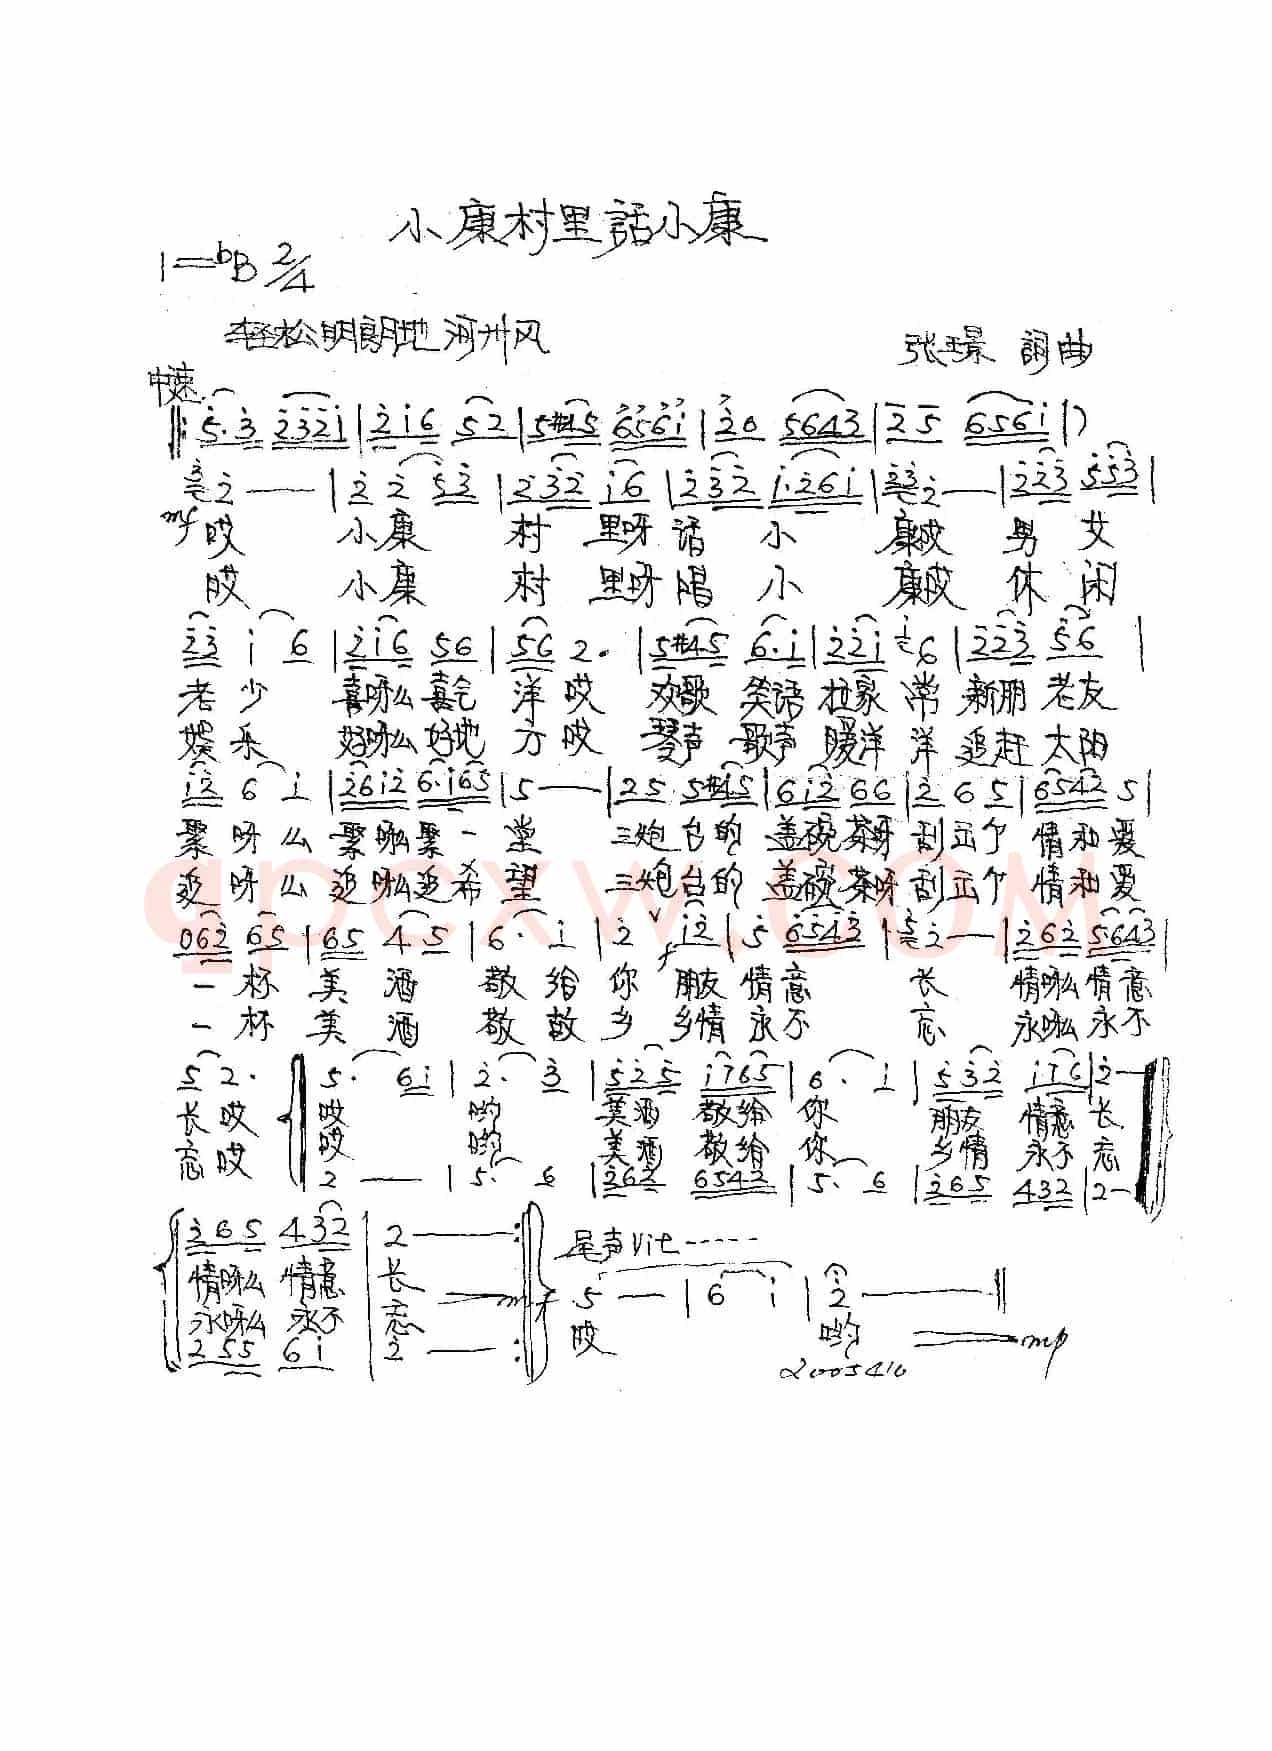 小康村里話小康
1=bB 2/4
轻松明朗地 河州风
张璟 詞曲
中速
‖: 5·3 2321 | 216 52 | 5#45 6561 | 20 5643 | 25 6561 | )
2 — | 2 2 53 | 232 16 | 232 1·261 | 2 — | 223 553 |
mf 哎 小康 村 里呀 話 小 康哎 男 女
哎 小康 村 里呀 唱 小 康哎 休 闲
23 1 6 | 216 56 | 56 2· | 5#45 6·1 | 221 6 | 223 56 |
老 少 喜呀么 喜气 洋 哎 欢歌 笑语 拉家 常 新朋 老友
娱 乐 好呀么 好地 方 哎 琴声 歌声 暖洋 洋 追赶 太阳
12 6 1 | 2612 6·165 | 5 — | 25 5#45 | 612 66 | 2 65 | 6542 5 |
聚 呀 么 聚呀么聚 一 堂 三炮 台的 盖碗茶呀 刮出个 情和爱
追 呀 么 追呀么追 希 望 三炮 台的 盖碗茶呀 刮出个 情和爱
062 65 | 65 45 | 6· 1 | 2 12 | 5 6543 | 2 — | 262 5643 |
一 杯 美 酒 敬 给 你 f 朋友 情 意 长 情呀么 情意
一 杯 美 酒 敬 故 乡 乡情 永 不 忘 永呀么 永不
5 2· 5· 61 | 2· 3 | 525 1765 | 6· 1 | 532 176 | 2 —
长 哎 哎 哟 美酒 敬给 你 朋友 情意 长
忘 哎 哎 哟 美酒 敬给 你 乡情 永不 忘
2 — | 5· 6 | 262 6542 | 5· 6 | 265 432 | 2 —
265 432 | 2 — :
尾声 Vit-----
情呀么 情意 长
5 — | 6 1 | 2 — ‖
永呀么 永不 忘 mf
哎 哟 mp
255 61 | 2 — :
2005410
qpcxw.com